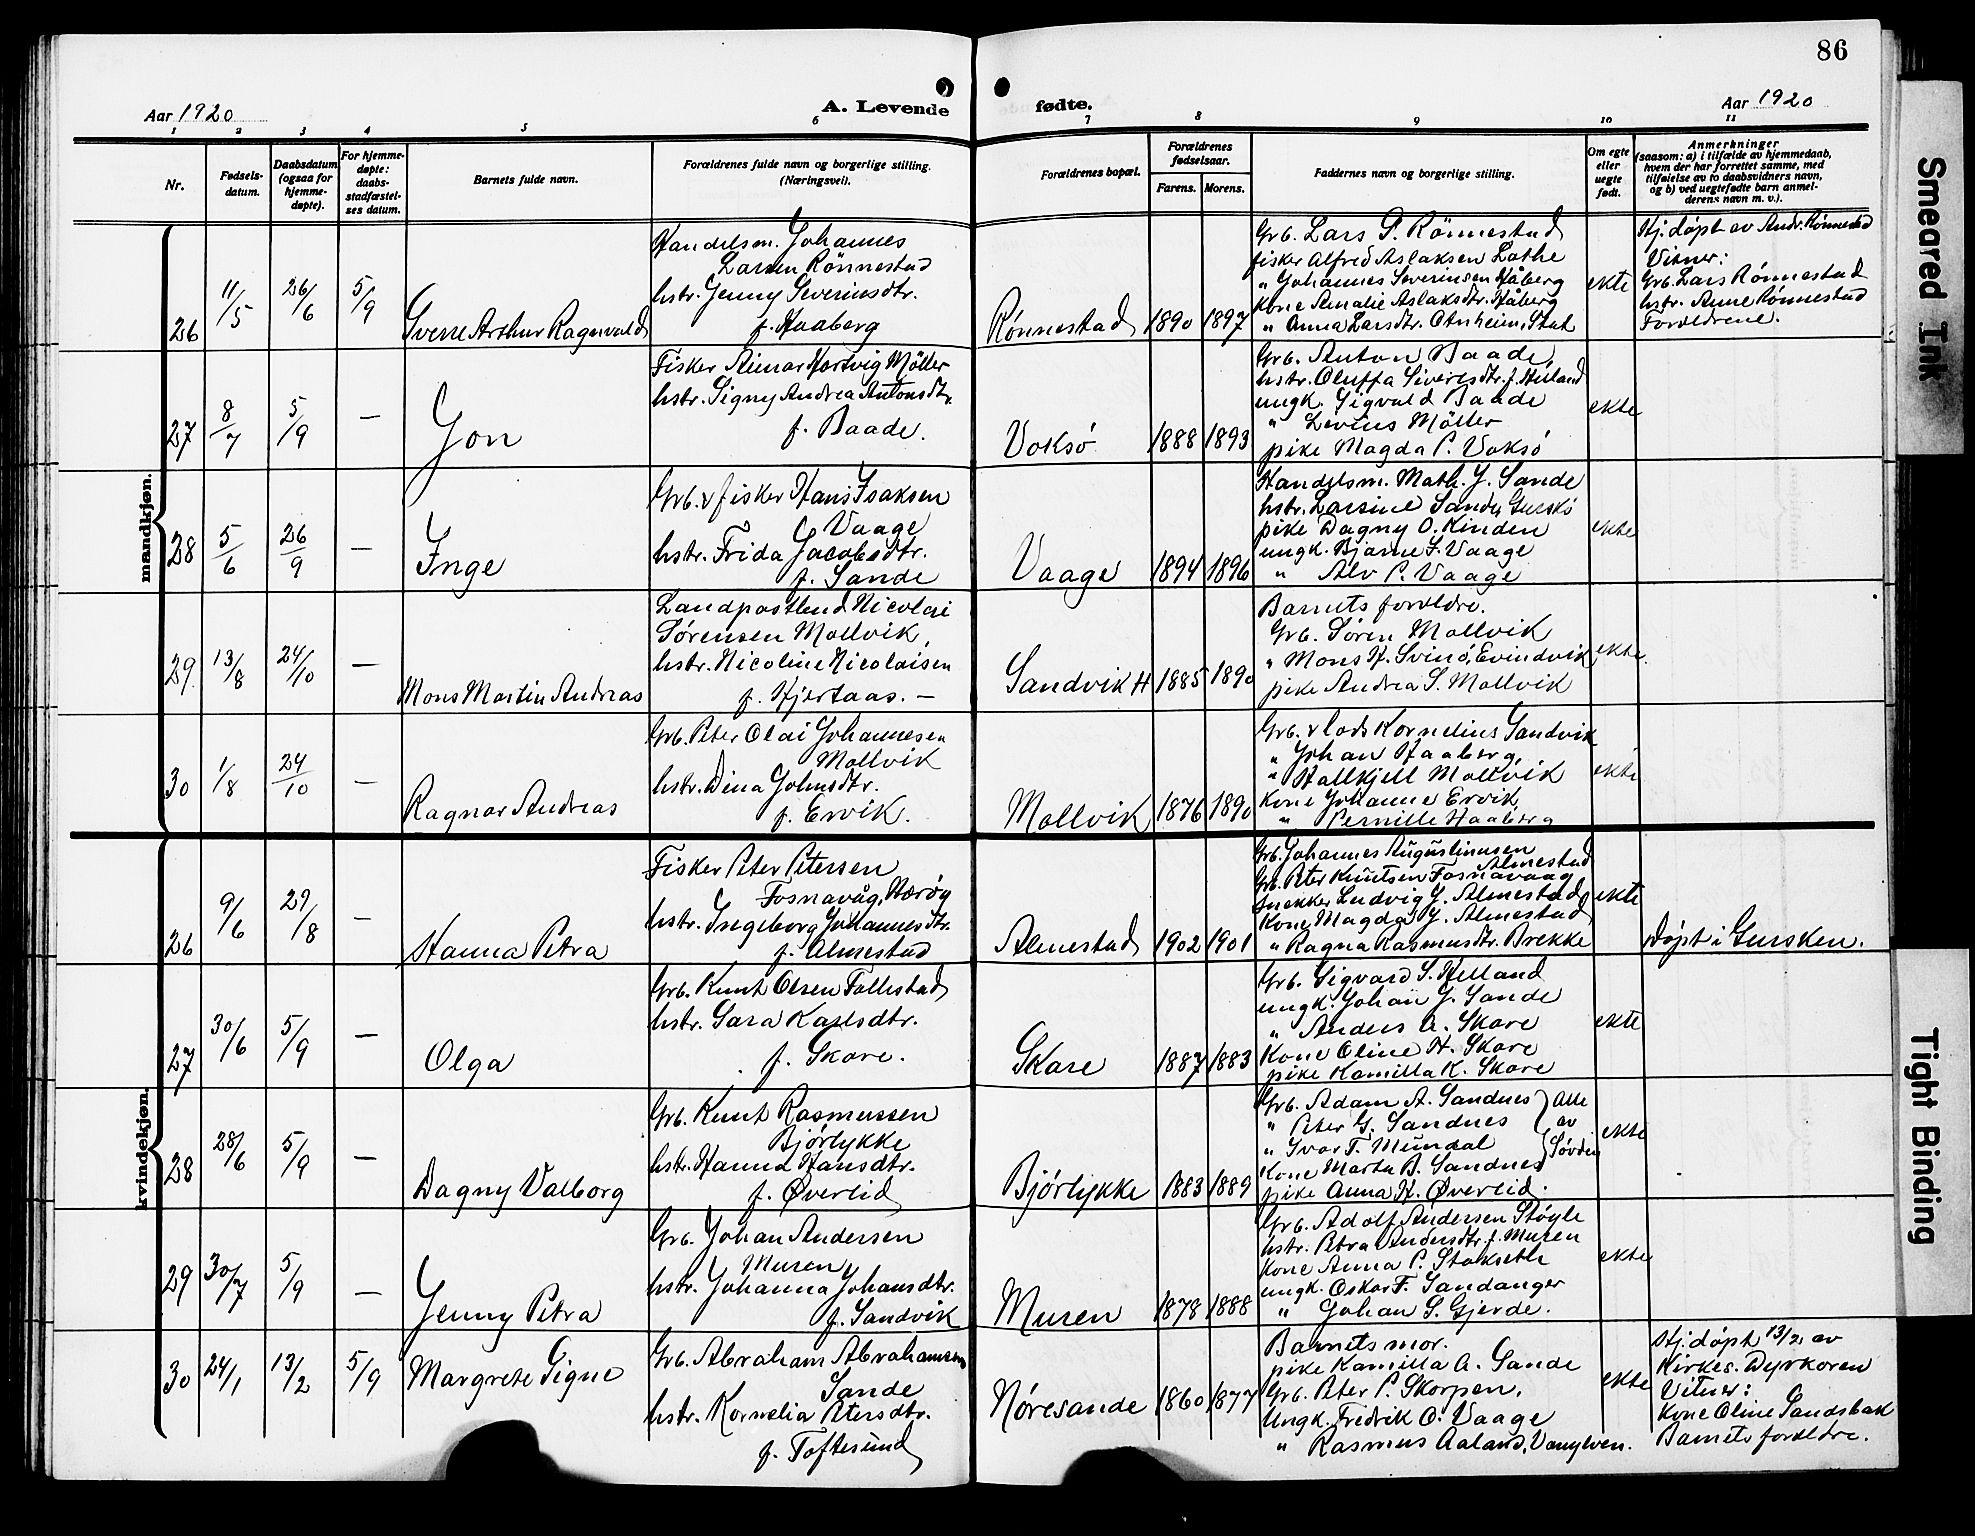 86
Aar 1920
A. Levende
fødte.
Aar 1920
1 2 3 4 5 6 7 8 9 10 11
Nr.
Fødsels-
datum.
Daabsdatum
(ogsaa for
hjemme-
døpte).
For hjemme-
døpte:
daabs-
stadfæstel-
ses datum.
Barnets fulde navn.
Forældrenes fulde navn og borgerlige stilling.
(Næringsvei).
Forældrenes bopæl.
Forældrenes
fødselsaar.
Farens. Morens.
Faddernes navn og borgerlige stilling.
Om egte
eller
uegte
født.
Anmerkninger
(saasom: a) i tilfælde av hjemmedaab,
hvem der har forrettet samme, med
tilføielse av to daabsvidners navn,
og b) ved uegtefødte barn anmel-
derens navn m. v.).
mandkjøn.
26
11/5
26/6
5/9
Sverre Arthur Ragnvald
Handelsm. Johannes
Larsen Rönnestad
hstr. Jenny Severinsdtr.
f. Haaberg
Rönnestad
1890
1897
Grb. Lars P. Rönnestad
fisker Alfred Aslaksen Lothe
" Johannes Severinsen Håberg
Kone Amalie Aslaksdtr. Håberg
" Anna Larsdtr. Otnheim, Stat
ekte
Hj. døpt av Andr. Rønnestad
Vitner:
Grb. Lars Rønnestad
hstr. Anne Rønnestad
Foreldrene.
27
8/7
5/9
—
Jon
Fisker Aimar Hartvig Möller
hstr. Signy Andrea Antonsdtr.
f. Baade.
Voksö
1888
1893
Grb. Anton Baade,
hstr. Oluffa Siversdtr. f.
ungk. Sigvald Baade
" Levius Möller
pike Magda P. Voksö
ekte
28
5/6
26/9
—
Inge
Grb. & fisker Hans Isaksen
Vaage
hstr. Frida Jacobsdtr.
f. Sande
Vaage
1894
1896
Handelsm. Math. J. Sande
hstr. Larsine Sande, Gurskö
pike Dagny O. Kinden
ungk. Bjarne I. Vaage
" Alv P. Vaage
ekte
29
13/8
24/10
—
Mons Martin Andreas
Landpostbud Nicolai
Sörensen Mollvik,
hstr. Nicoline Nicolaisen
f. Hjertaas. —
Sandvik H
1885
1890
Barnets foreldre.
Grb. Sören Mollvik
" Mons H. Svinö, Evindvik
pike Andrea S. Mollvik
ekte
30
1/8
24/10
—
Ragnar Andreas
Grb. Peter Olai Johannesen
Mollvik
hstr. Dina Johnsdtr.
f. Ervik.
Mollvik
1876
1890
Grb. & lods Kornelius Sandvik
" Johan Haaberg,
" Hallkjell Mollvik
Kone Johanne Ervik,
" Pernille Haaberg
ekte
kvindekjøn.
26
9/6
29/8
—
Hanna Petra
Fisker Peter Petersen
Fosnavåg, Herøy
hstr. Ingeborg Johannesdtr.
f. Almestad
Almestad
1902
1901
Grb. Johannes Augustinusen
Almestad
Grb. Peter Knutsen Fosnavaag
snekker Ludvig J. Almestad
Kone Magda J. Almestad
" Ragna Rasmusdtr. Brekke
ekte
Døpt i Gursken.
27
30/6
5/9
—
Olga
Grb. Knut Olsen Follestad
hstr. Sara Karlsdtr.
f. Skare.
Skare
1887
1883
Grb. Sigvard S. Helland
ungk. Johan J. Sande
" Anders A. Skare
Kone Oline H. Skare
pike Kamilla K. Skare
ekte
28
28/6
5/9
—
Dagny Valborg
Grb. Knut Rasmussen
Bjørlykke
hstr. Hanna Hansdtr.
f. Øverlid
Bjórlykke
1883
1889
Grb. Adam A. Sandnes
" Peter G. Sandnes
" Ivar T. Mundal
Kone Marta B. Sandnes
pike Anna H. Øverlid.
Alle
av
Søvden
ekte
29
30/7
5/9
—
Jenny Petra
Grb. Johan Andersen
Muren,
hstr. Johanna Johansdtr.
f. Sandvik
Muren
1878
1888
Grb. Adolf Andersen Støyle
hstr. Petra Andersdtr. f. Muren
Kone Anna P. Stokseth
ungk. Oskar F. Sandanger
" Johan S. Gjerde.
ekte
30
24/1
13/2
5/9
Margrete Signe
Grb. Abraham Abrahamsen
Sande
hstr. Kornelia Petersdtr.
f. Toftesund
Nóresande
1860
1877
Barnets mor.
pike Kamilla A. Sande
Grb. Peter P. Skorpen.
Ungk. Fredrik O. Vaage
" Rasmus Aaland, Vanylven.
ekte
Hj. døpt 13/2 av
Kirkes. Dyrkoren
Vitner:
Kone Oline Sandsbak
Barnets foreldre.
Smeared Ink
Tight Binding